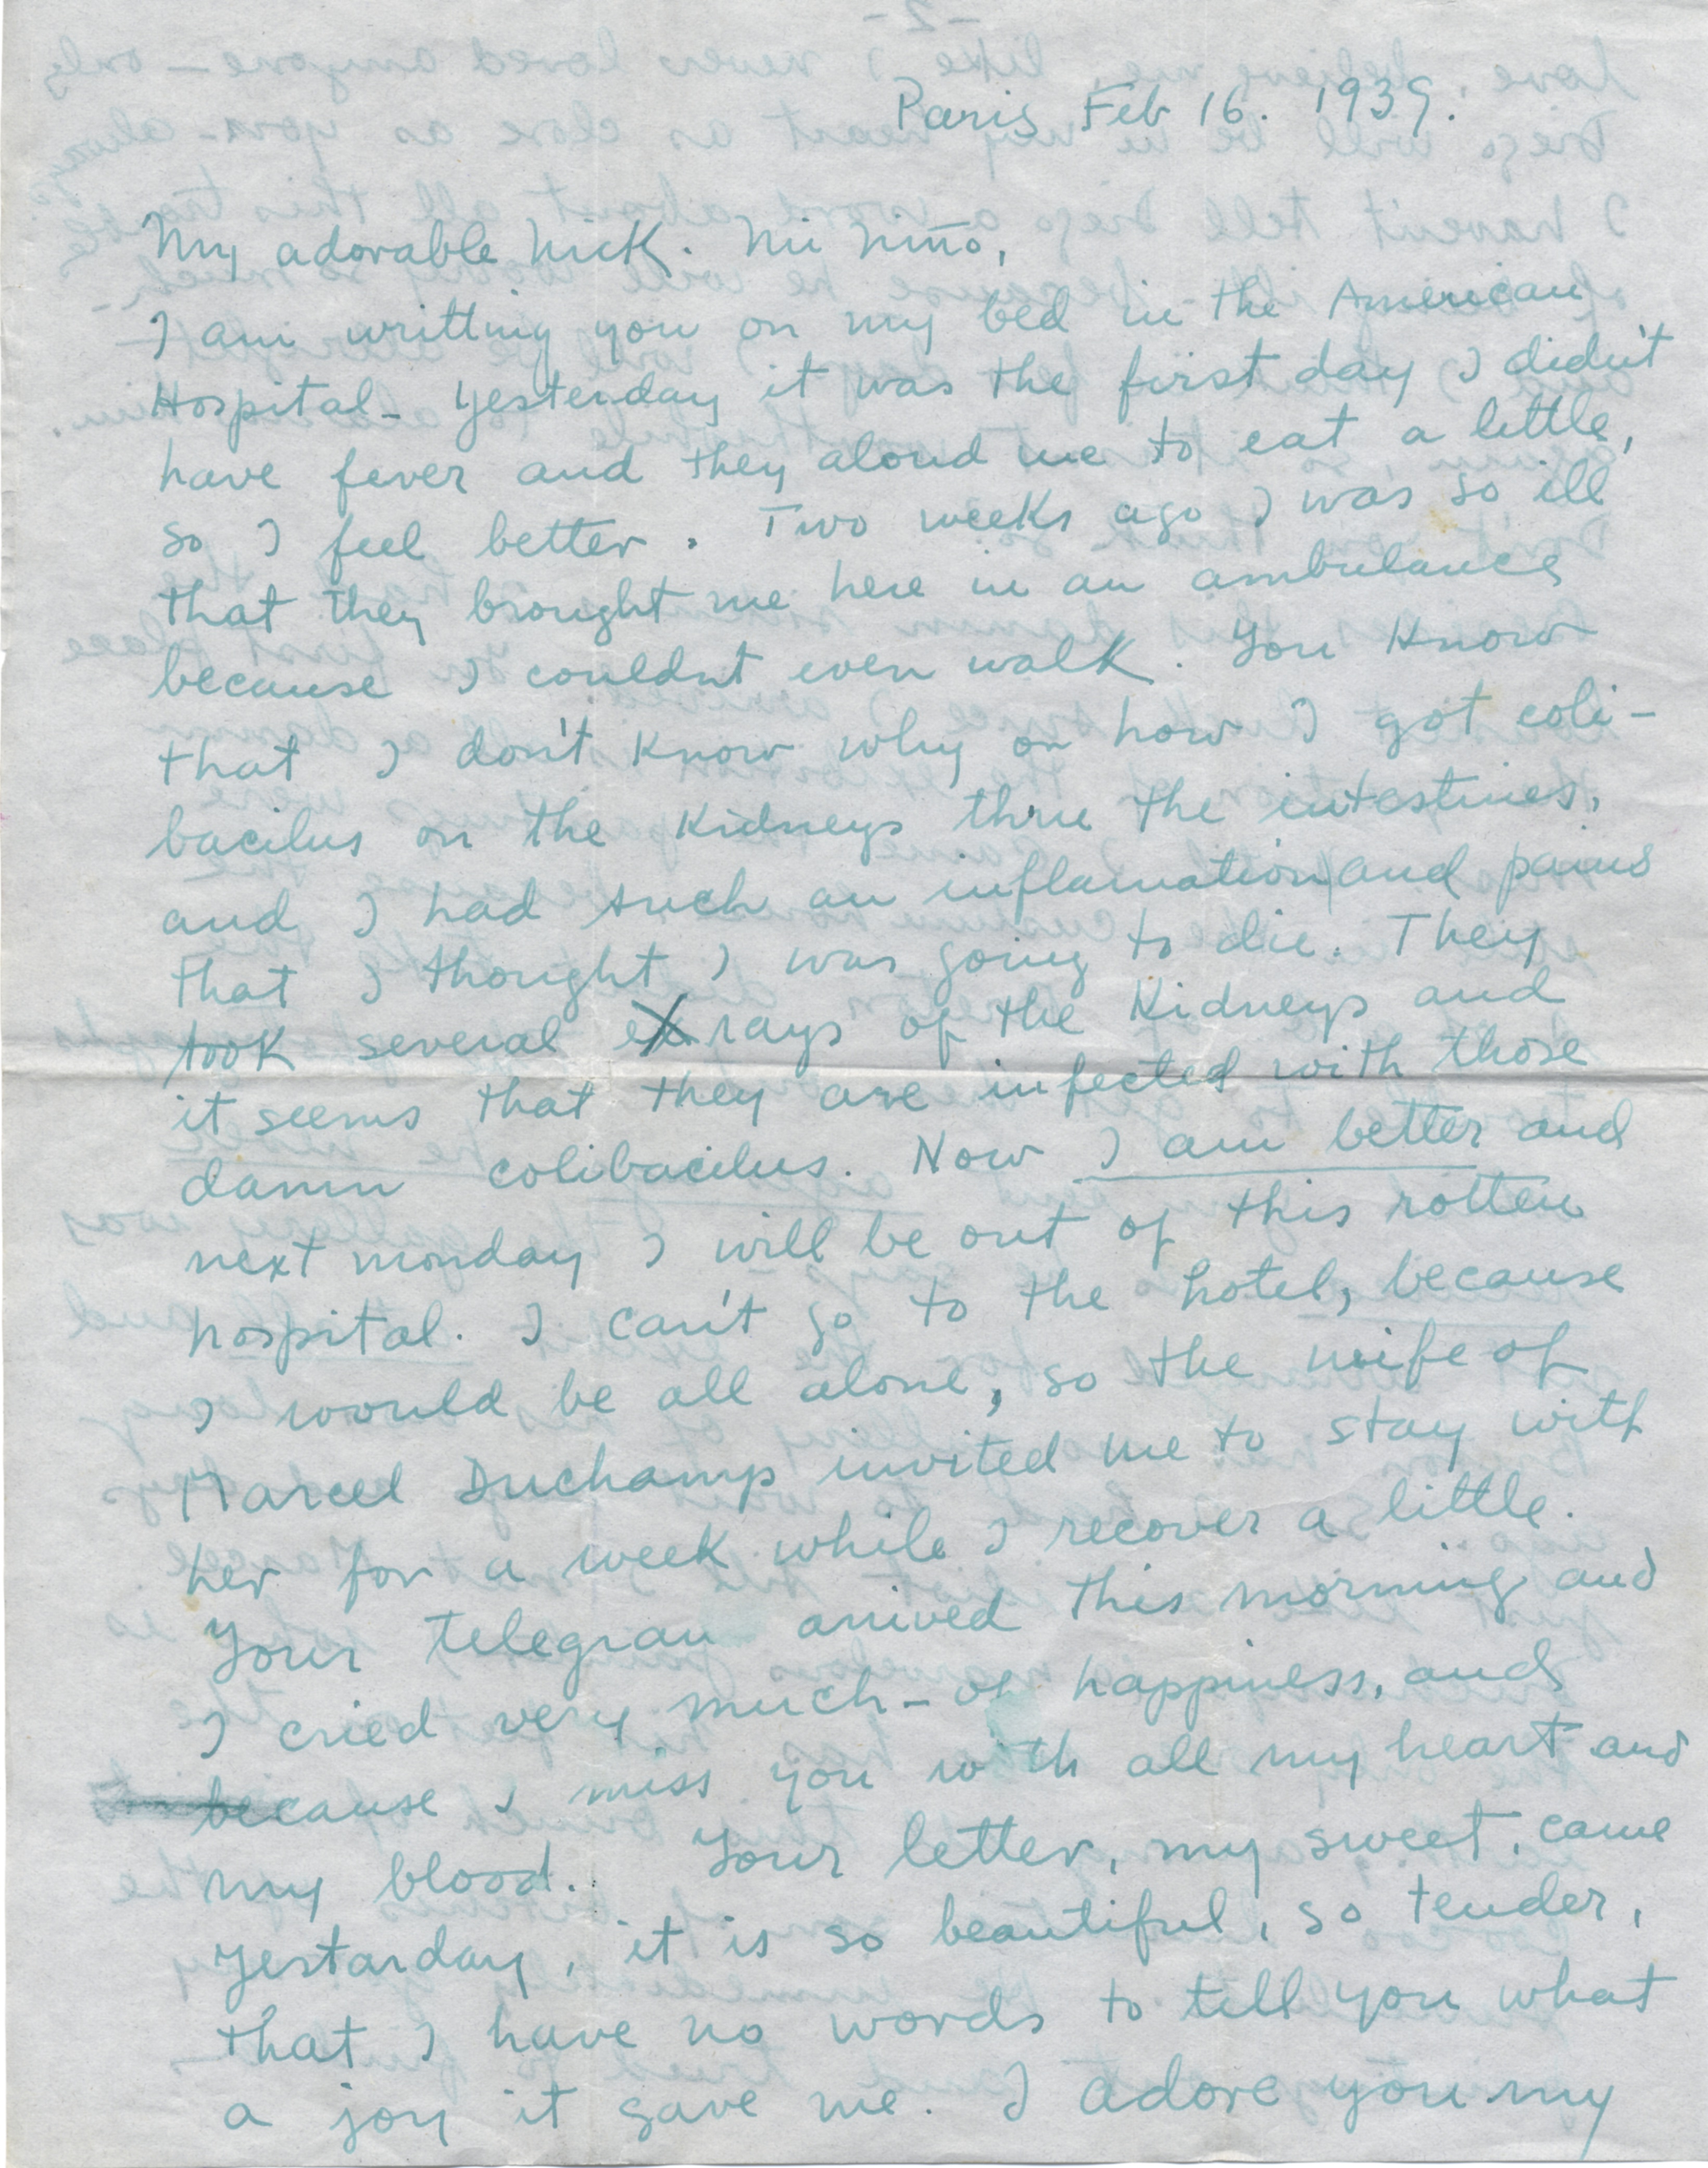 Paris, Feb 16. 1939.
My adorable Nick. Mi Niño,
I am writting you on my bed in the American
Hospital- Yesterday it was the first day I didn't
have fever and they aloud me to eat a little,
so I feel better. Two weeks ago I was so ill
that they brought me here in an ambulance
because I couldnt even walk. You Know
that I don't Know why or how I got coli-
bacilus on the Kidneys thru the intestines,
and I had such an inflamation and pains
that I thought I was going to die. They
took several X rays of the Kidneys and
it seems that they are infected with those
damn colibacilus. Now I am better and
next monday I will be out of this rotten
hospital. I can't go to the hotel, because
I would be all alone, so the wife of
Marcel Duchamp invited me to stay with
her for a week while I recover a little.
Your telegram arrived this morning and
I cried very much- of happiness, and
because I miss you with all my heart and
my blood. Your letter, my sweet, came
yestarday, it is so beautiful, so tender,
that I have no words to tell you what
a joy it gave me. I adore you my